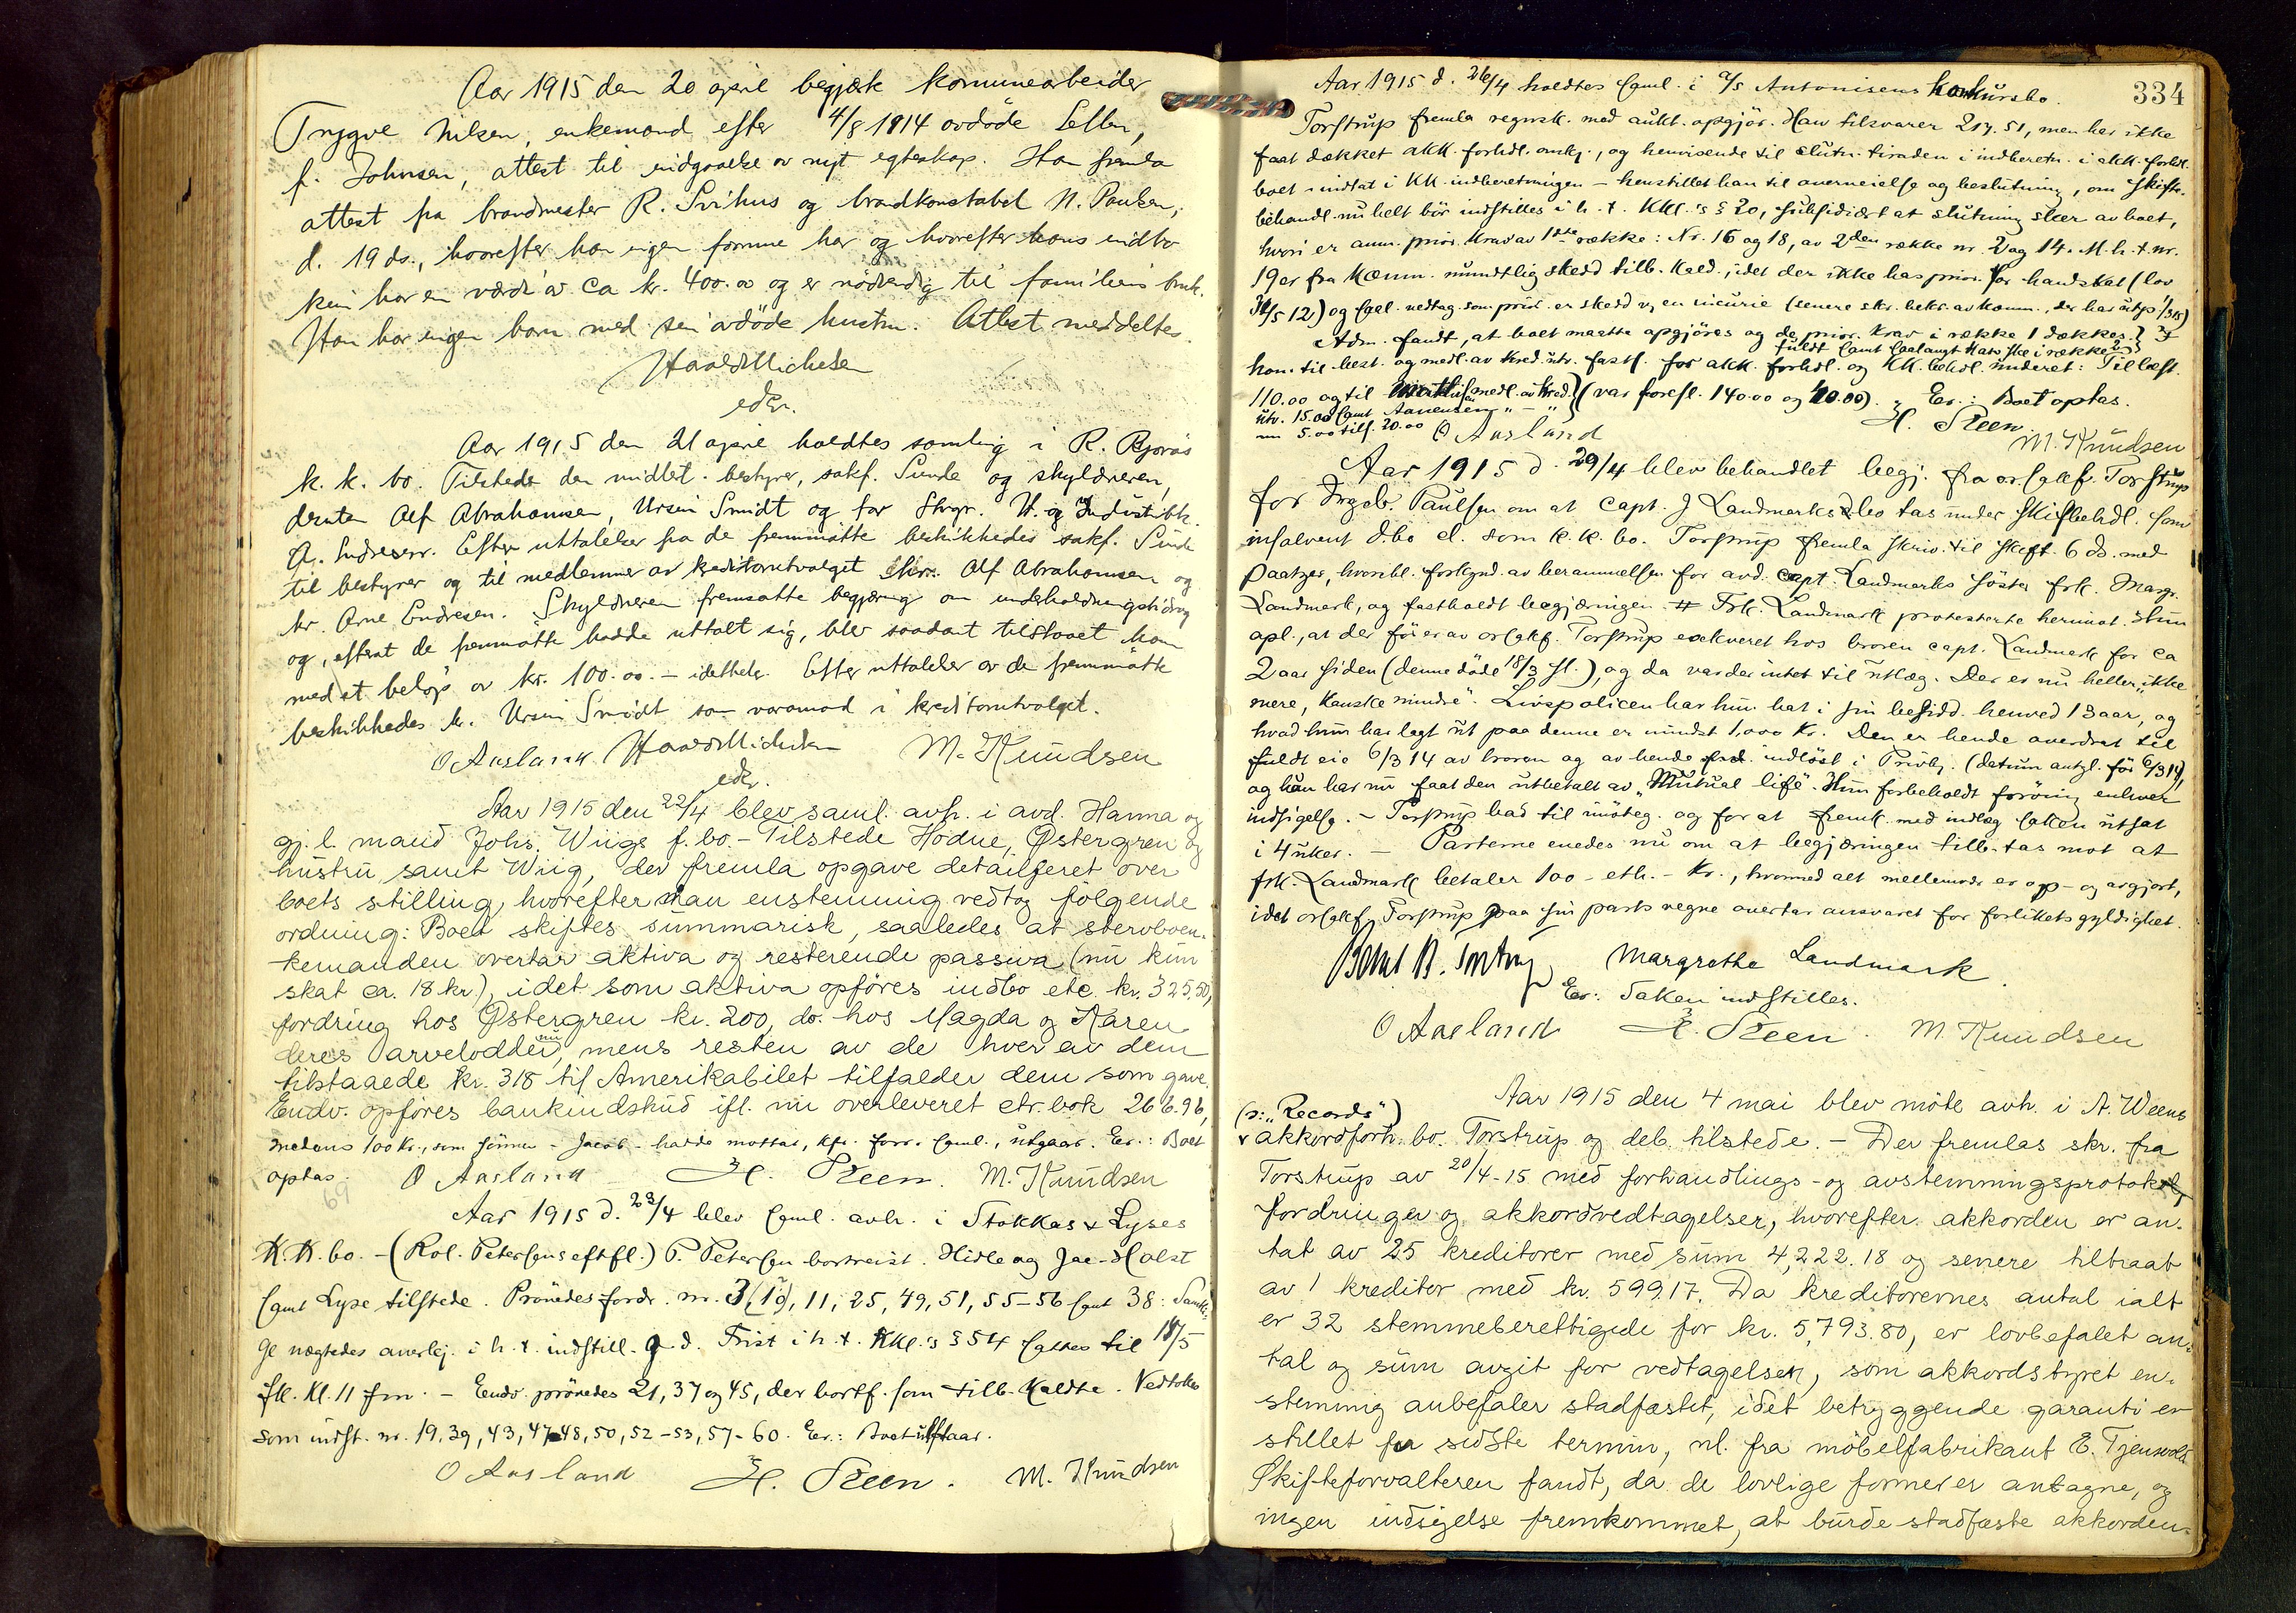 Aar 1915 den 20 april begjærte kommunearbeider
Trygve Nilsen, enkemand efter 4/8 1914 avdöde
f. Johnsen, attest til indgaaelse av nyt egteskap. Han fremla
attest fra brandmester R. Svihus og brandkonstabel N. Paulsen,
d. 19 ds., hvorefter han ingen formue har og hvorefter hans indbo
kun har en værdi av ca kr. 400.00 og er nödvendig til familiens bruk.
Han har ingen barn med sin avdöde hustru. Attest meddeltes.
Harald Michelsen
edsv.
Aar 1915 den 21 april holdtes samling i R.
k. k. bo. Tilstede den midlert. bestyrer, sakf. Sunde og skyldneren,
Alf Abrahamsen, Ursin Smidt og for H. og Industribk.
A. Endresen. Efter uttalelser fra de fremmötte beskikkedes sakf. Sunde
til bestyrer og til medlemmer av kreditorutvalget Alf Abrahamsen og
hr. Arne Endresen. Skyldneren fremsatte begjæring om underholdningsbidrag
og, efterat de fremmötte hadde uttalt sig, blev saadant tilstaaet ham
med et belöp av kr. 100.00. – idethele. Efter uttalelser av de fremmötte
beskikkedes hr. Ursin Smidt som varamand i kreditorutvalget.
O Aasland Harald Michelsen M. Knudsen
edsv.
Aar 1915 den 22/4 blev saml. avh. i avd. Hanna og
gj. l. mand Johs. Wiigs f. bo. – Tilstede Hodne, Østergren og
hustru samt Wiig, der fremla opgave detaljeret over
boets stilling, hvorefter man enstemmig vedtog følgende
ordning: Boet skiftes summarisk, saaledes at stervboen-
kemanden overtar aktiva og resterende passiva (nu kun
skat ca. 18 kr.), idet som aktiva opföres indbo etc kr. 325.50,
fordring hos Østergren kr. 200, do. hos Magda og Karen
deres arvelodder, mens resten av de hver av dem
tilstaaede kr. 318 til Amerikabilet tilfalder dem som gave.
Endv. opföres bankindskud ifl. nu overleveret ctr. bok 266.96,
medens 100 kr., som sönnen – Jacob – hadde mottat, kfr. forr. saml., utgaar. Eer.: Boet
optas. O Aasland H. Steen. M. Knudsen
Aar 1915 d. 23/4 blev saml. avh. i Stokkas & Lyses
K.K. bo. – (Rol. Petersens eftfl.) P. Petersen bortreist. Hidle og Jac. Holst
samt Lyse tilstede. Prövedes fordr. nr. 3, (19), 11, 25, 49, 51, 55–56 samt 38.
negtedes anerkj. i h. t. indstill. g. d. Frist i h. t. KKl.'s § 54 sattes til 18/5
fl. Kl. 11 fm. – Endv. prövedes 21, 37 og 45, der bortf. som tilb. kaldte. Vedtokes
som indst. nr. 19, 39, 43, 47–48, 50, 52–53, 57–60. Eer.: Boet utstaar.
O Aasland H. Steen. M. Knudsen
334
Aar 1915 d. 26/4 holdtes saml. i A/S Antonisens konkursbo.
Torstrup fremla regnsk. med aukt. opgjör. Han tilsvarer 217.51, men har ikke
faat dækket akk. forhdl. omk., og henvisende til slutn. tiraden i indberetn. i akk. forhdl.
boet – indtat i KK. indberetningen – henstillet han til overveielse og beslutning, om skifte-
behandl. nu helt bör indstilles i h. t. KKl.'s § 20, subsidiært at slutning sker av boet,
hvori er anm. prior. krav av 1ste række: Nr. 16 og 18, av 2den række nr. 2 og 14. M. h. t. nr.
19 er fra Kæmn. mundtlig skedd tilb. kald., idet der ikke has prior. for handskat (lov
og sael. vedtag. som prior. er skedd v. en incurie (senere skr. bekr. av kæmn.,
Adm. fandt, at boet maatte opgjöres og de prior. krav i række 1 dækkes
fuldt samt saalangt kan ske i række 2
hon. til best. og medl. av kred. utv. fasts. for akk. forhdl. og KK. behdl. inderet: Til best.
110.00 og til medl. av kred. (var foresl. 140.00 og 40.00). Eer.: Boet optas.
utv. 15.00 samt Aanensen
nu 5.00 tils. 20.00 O Aasland H. Steen.
M. Knudsen
Aar 1915 d. 29/4 blev behandlet begj. fra orsakf. Torstrup
for Ingeb. Paulsen om at capt. J Landmarks d.bo tas under skiftbehdl. som
insolvent d.bo el. som k. k. bo. Torstrup fremla skriv. til skift. 6 ds. med
paategn., hvoribl. forkynd. av berammelsen for avd. capt. Landmarks söster frk. Margr.
Landmark, og fastholdt begjæringen. Frk. Landmark protesterte herimot. Hun
opl., at der för er av orsakf. Torstrup eksekveret hos broren capt. Landmark for ca
2 aar siden (denne döde 18/3 sl.), og da var der intet til utlæg. Der er nu heller „ikke
mere, kanske mindre". Livspolicen har hun hat i sin besidd. henved 13 aar, og
hvad hun har lagt ut paa denne er mindst 1,000 kr. Den er hende overdrat til
fuldt eie 6/3 14 av broren og av hende indlöst i Privb. (datum antgl. för 6/3 14),
og hun har nu faat den utbetalt av „Mutual life". Hun forbeholdt forövrig enhver
indsigelse. – Torstrup bad til imöteg. og for at fremk. med indlæg saken utsat
i 4 uker. – Parterne enedes nu om at begjæringen tilb. tas mot at
frk. Landmark betaler 100 – eth. – kr., hvormed alt mellemvær er op- og avgjort,
idet orsakf. Torstrup paa sin parts vegne overtar ansvaret for forlikets gyldighet.
Margrethe Landmark
Eer.: Saken indstilles.
O Aasland H. Steen. M. Knudsen
Aar 1915 den 4 mai blev möte avh. i A. Weens
(ɔ: „Records")
akkordforh. bo. Torstrup og deb. tilstede. – Der fremlas skr. fra
Torstrup av 20/4-15 med forhandlings- og avstemningsprotokol,
fordringer og akkordvedtagelser, hvorefter akkorden er an-
tat av 25 kreditorer med sum 4,222.18 og senere tiltraat
av 1 kreditor med kr. 599.17. Da kreditorernes antal ialt
er 32 stemmeberettigede for kr. 5,793.80, er lovbefalet an-
tal og sum avgit for vedtagelsen, som akkordstyret en-
stemmig anbefaler stadfæstet, idet betryggende garanti er
stillet for sidste termin, nl. fra möbelfabrikant E. Tjensvold
Skifteforvalteren fandt, da de lovlige former er antagne, og
ingen indsigelse fremkommet, at burde stadfæste akkorden.